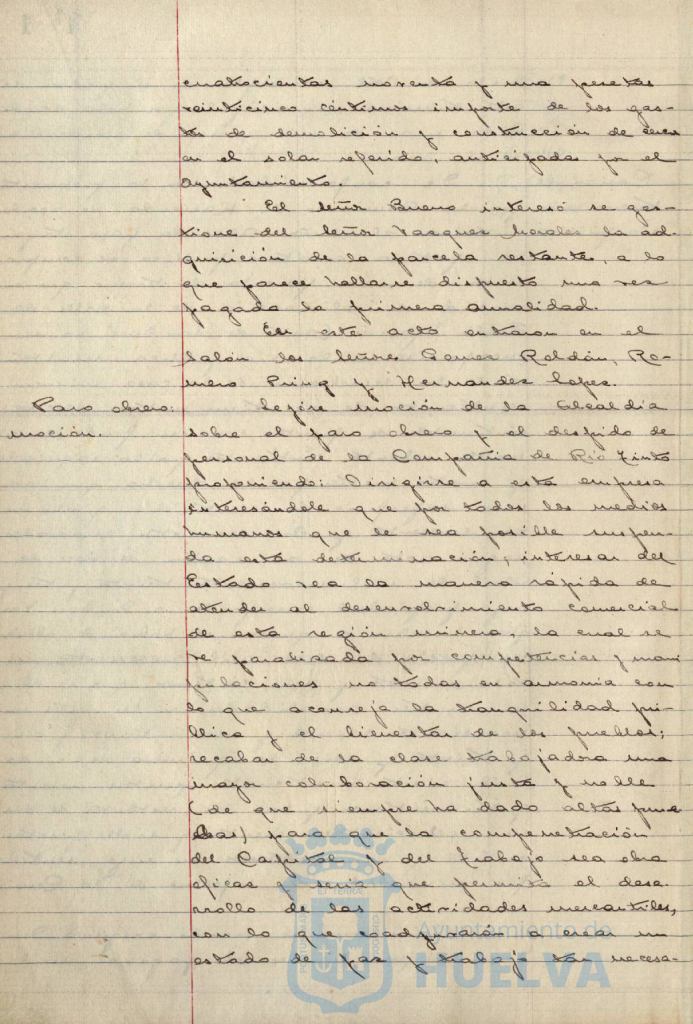 cuatrocientas noventa y una pesetas
veinticinco céntimos importe de los gas-
tos de demolición y construcción de cerca
en el solar referido, anticipadas por el
Ayuntamiento.
El Señor Bueno interesó se ges-
tione del Señor Vazquez Morales la ad-
quisición de la parcela restante, a lo
que parece hallarse dispuesto una vez
pagada la primera anualidad.
En este acto entraron en el
Salón los Señores Gomez Roldán, Ro-
mero Pring y Hernandez Lopez.
Paro obrero:
moción.
Leyóse moción de la Alcaldia
sobre el paro obrero y el despido de
personal de la Compañia de Rio Tinto
proponiendo: Dirigirse a esta empresa
interesándole que por todos los medios
humanos que le sea posible suspen-
da esta determinación; interesar del
Estado vea la manera rápida de
atender al desenvolvimiento comercial
de esta región minera, la cual se
ve paralizada por competencias y mani
pulaciones no todas en armonia con
lo que aconseja la tranquilidad pú-
blica y el bienestar de los pueblos;
recabar de la clase trabajadora una
mayor colaboración justa y noble
(de que siempre ha dado altas prue
bas) para que la compenetración
del Capital y del trabajo sea obra
eficaz y seria que permita el desa-
rrollo de las actividades mercantiles,
con lo que coadyuvarán a crear un
estado de paz y trabajo tan necesa-
Ayuntamiento de
HUELVA